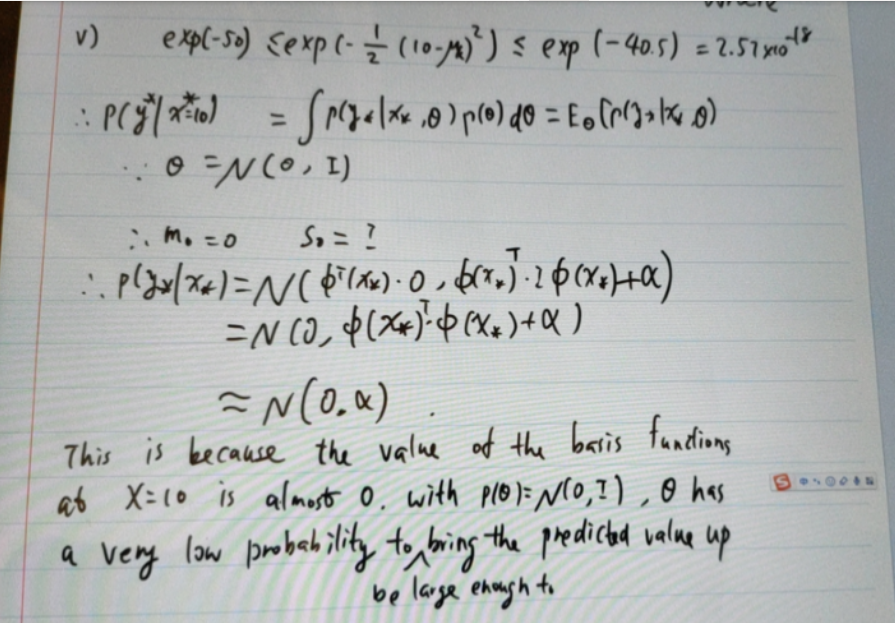 where
v) exp(-50) ≤ exp(-½(10-μₖ)²) ≤ exp(-40.5) = 2.57×10⁻¹⁸
∴ P(y*|x*=10) = ∫p(y*|x*,θ)p(θ)dθ = E_θ[p(y*|x*,θ)
∵ θ = N(0, I)
∴ m₀ = 0 S₀ = I
∴ p(y*|x*) = N(ϕᵀ(x*)·0, ϕ(x*)ᵀ·I ϕ(x*)+α)
= N(0, ϕ(x*)ᵀ·ϕ(x*)+α)
≈ N(0.α).
This is because the value of the basis functions
at X=10 is almost 0. with p(θ)=N(0,I), θ has
a very low probability to bring the predicted value up
be large enough to